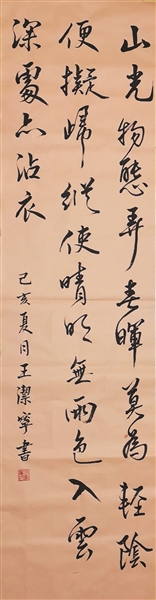 山光物態弄春暉莫為輕陰
便擬歸縱使晴明無雨色入雲
深處亦沾衣
己亥夏月王潔寧書